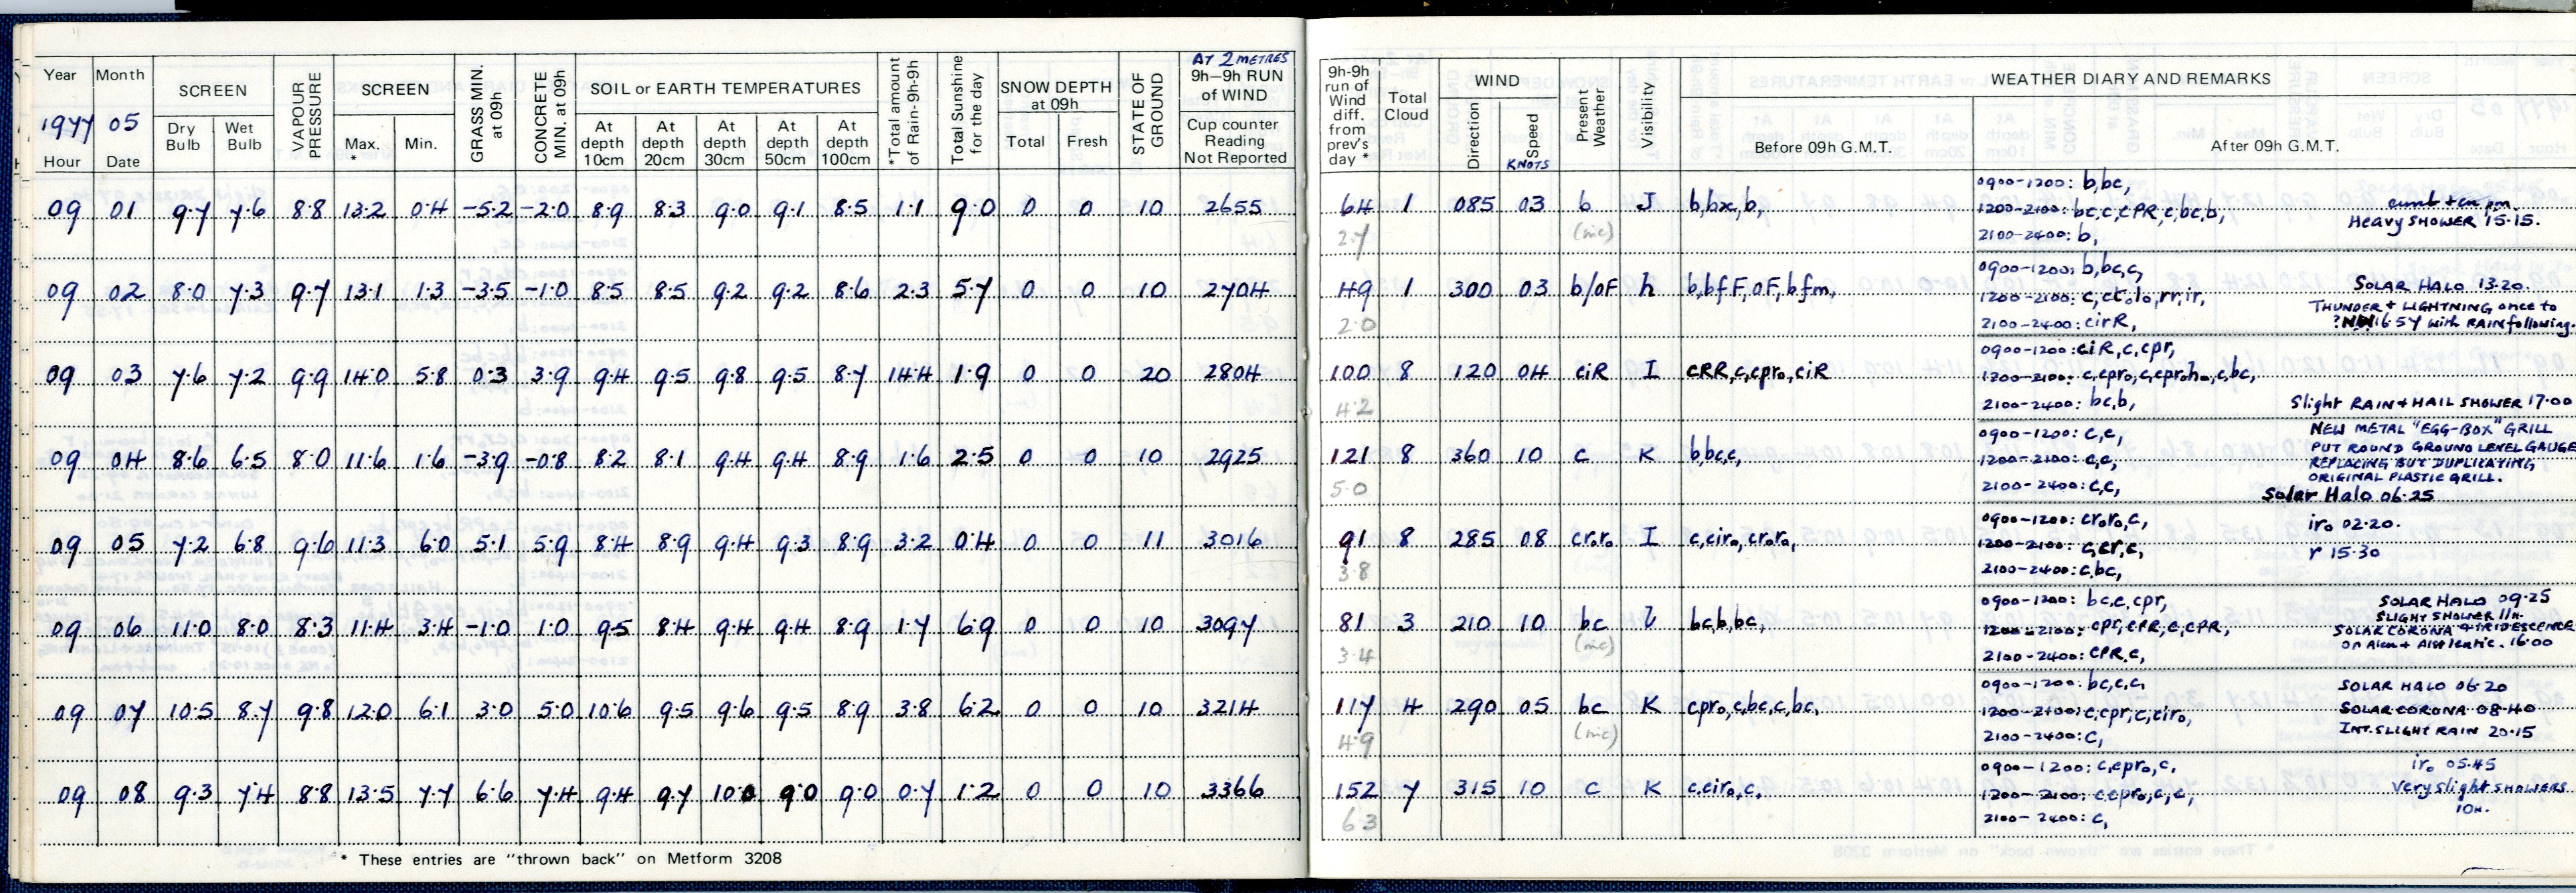 AT 2 METRES
Year Month SCREEN VAPOUR PRESSURE SCREEN GRASS MIN. at 09h CONCRETE MIN. at 09h SOIL or EARTH TEMPERATURES *Total amount of Rain-9h-9h Total Sunshine for the day SNOW DEPTH at 09h STATE OF GROUND 9h—9h RUN of WIND
1977 05 Dry Bulb Wet Bulb Max. * Min. At depth 10cm At depth 20cm At depth 30cm At depth 50cm At depth 100cm Total Fresh Cup counter Reading Not Reported
Hour Date
09 01 9.7 7.6 8.8 13.2 0.4 -5.2 -2.0 8.9 8.3 9.0 9.1 8.5 1.1 9.0 0 0 10 2655
09 02 8.0 7.3 9.7 13.1 1.3 -3.5 -1.0 8.5 8.5 9.2 9.2 8.6 2.3 5.7 0 0 10 2704
09 03 7.6 7.2 9.9 14.0 5.8 0.3 3.9 9.4 9.5 9.8 9.5 8.7 14.4 1.9 0 0 20 2804
09 04 8.6 6.5 8.0 11.6 1.6 -3.9 -0.8 8.2 8.1 9.4 9.4 8.9 1.6 2.5 0 0 10 2925
09 05 7.2 6.8 9.6 11.3 6.0 5.1 5.9 8.4 8.9 9.4 9.3 8.9 3.2 0.4 0 0 11 3016
09 06 11.0 8.0 8.3 11.4 3.4 -1.0 1.0 9.5 8.4 9.4 9.4 8.9 1.7 6.9 0 0 10 3097
09 07 10.5 8.7 9.8 12.0 6.1 3.0 5.0 10.6 9.5 9.6 9.5 8.9 3.8 6.2 0 0 10 3214
09 08 9.3 7.4 8.8 13.5 7.7 6.6 7.4 9.4 9.7 10.0 9.0 9.0 0.7 1.2 0 0 10 3366
* These entries are "thrown back" on Metform 3208
9h-9h run of Wind diff. from prev's day * Total Cloud WIND Present Weather Visibility WEATHER DIARY AND REMARKS
Direction Speed KNOTS Before 09h G.M.T. After 09h G.M.T.
64 1 085 03 b J b,bx,b,
2.7 (nic)
0900-1200: b,bc,
1200-2100: bc,c,cPR,c,bc,b,
2100-2400: b,
Heavy SHOWER 15.15.
49 1 300 03 b/oF h b,bfF,oF,bfm,
2.0
0900-1200: b,bc,c,
2100-2400: cirR,
SOLAR HALO 13.20.
THUNDER + LIGHTNING once to
16.57 with RAIN following.
100 8 120 04 ciR I cRR,c,cpro,ciR
4.2
0900-1200: ciR,c,cpr,
1200-2100: c,cpro,c,cproho,c,bc,
2100-2400: bc,b,
Slight RAIN + HAIL SHOWER 17.00
121 8 360 10 c K b,bc,c,
5.0
0900-1200: c,c,
1200-2100: c,c,
2100-2400: c,c,
NEW METAL "EGG-BOX" GRILL
PUT ROUND GROUND LEVEL GAUGE
REPLACING BUT DUPLICATING
ORIGINAL PLASTIC GRILL.
Solar Halo 06.25
91 8 285 08 croro I c,ciro,croro,
3.8
0900-1200: croro,c,
1200-2100: c,cr,c,
2100-2400: c,bc,
iro 02.20.
r 15.30
81 3 210 10 bc bc,b,bc,
3.4 (nic)
0900-1200: bc,c,cpr,
1200-2100: cpr,cPR,c,cPR,
2100-2400: cPR,c,
SOLAR HALO 09.25
SLIGHT SHOWER 11H.
SOLAR CORONA + IRIDESCENCE
16.00
117 4 290 05 bc K cpro,c,bc,c,bc,
4.9 (nic)
0900-1200: bc,c,c,
1200-2100: c,cpr,c,ciro,
2100-2400: c,
SOLAR HALO 06.20
SOLAR CORONA 08.40
INT. SLIGHT RAIN 20.15
152 7 315 10 c K c,ciro,c,
6.3
0900-1200: c,cpro,c,
1200-2100: c,cpro,c,c,
2100-2400: c,
iro 05.45
Very slight SHOWERS
10H.